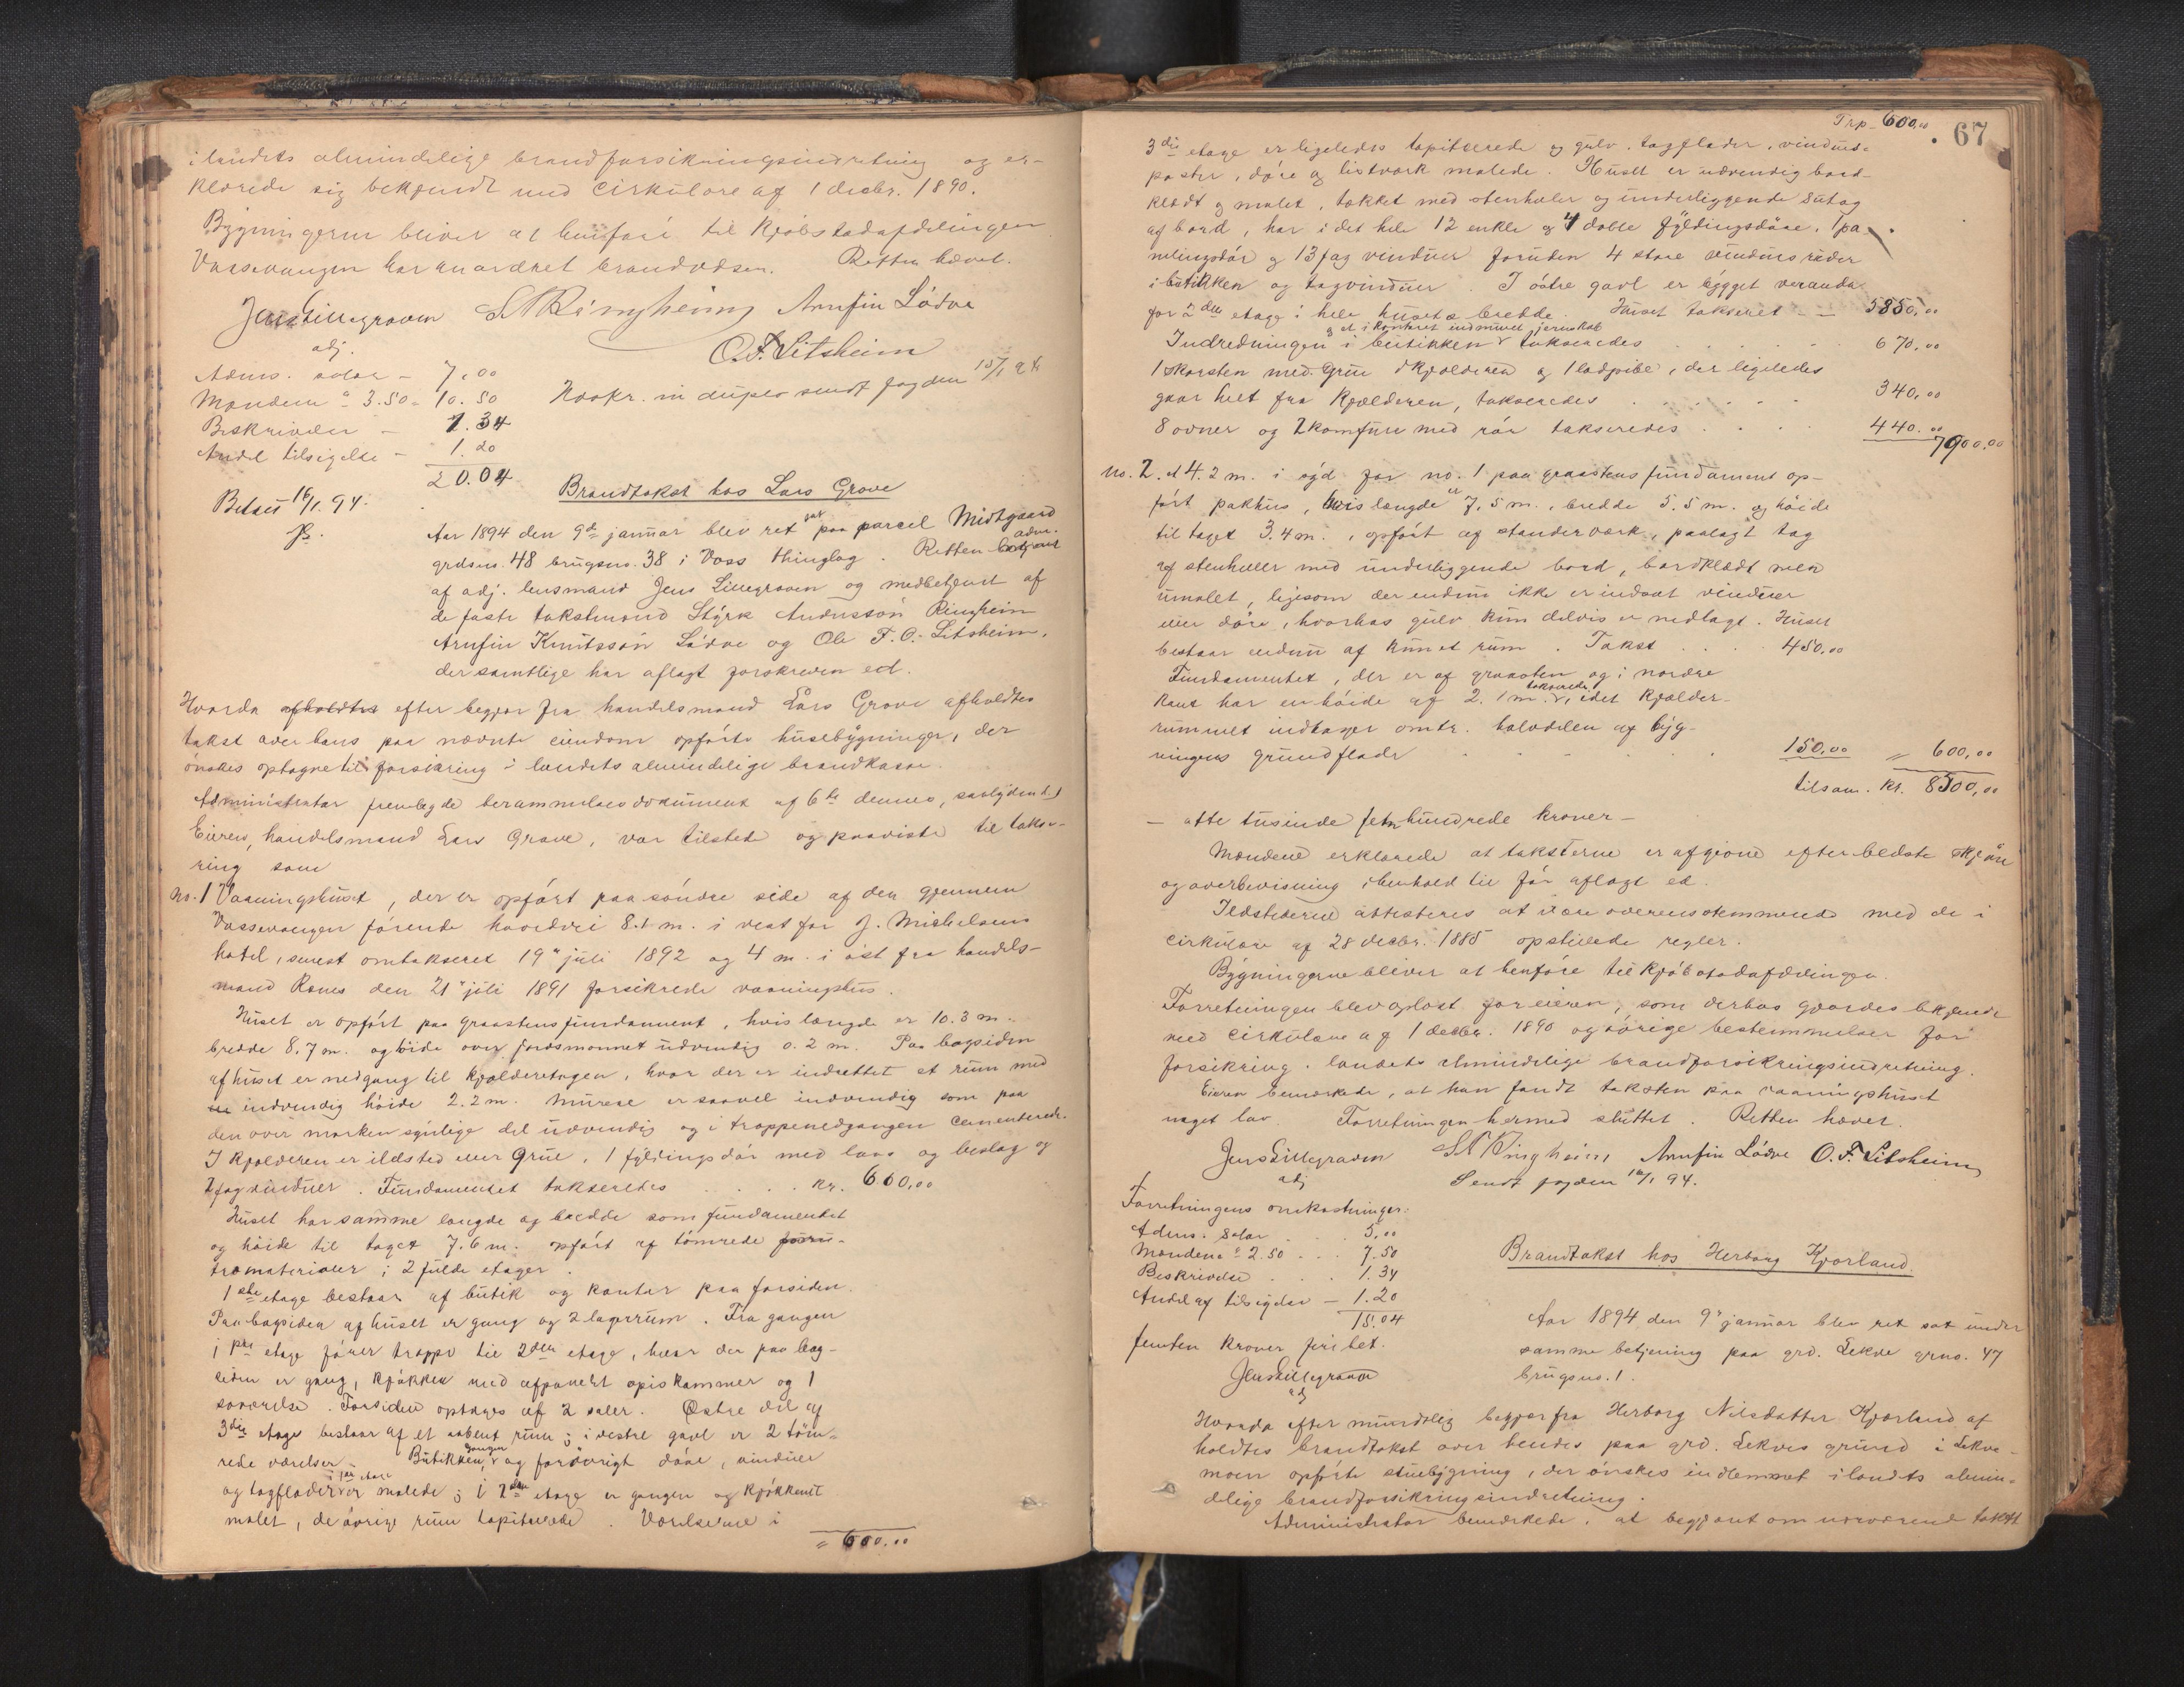 i landets almindelige brandforsikringsindretning og er-
klærede sig bekjendt med Cirkulære af 1 decbr. 1890.
Bygningerne bliver at henføre til Kjøbstadafdelingen
Vossevangen har anordnet brandvæsen. Retten hævet.
Jens Lillegraven SARingheim Arnfin Lødve
adj. O.F. Litsheim
Adms. salær – 7,00
Mændene a 3.50 – 10.50 Udskr. in duplo sendt fogden 15/1 94
Beskrivelse – 1.34
Andel tilsigelse – 1.20
20.04
Betalt 16/1 94. Brandtakst hos Lars Grove
Aar 1894 den 9de januar blev ret sat paa parcel Midtgaard
grdsno. 48 brugsno. 38 i Voss thinglag. Retten adm.
af adj. lensmand Jens Lillegraven og medbetjent af
de faste takstmænd Styrk Andersson Ringheim
Arnfin Knutsson Lødve og Ole F. O. Litsheim,
der samtlige har aflagt forskreven ed.
Hvorda afholdtes efter begjær fra handelsmand Lars Grove afholdtes
takst over hans paa nævnte eiendom opførte husebygninger, der
ønskes optagne til forsikring i landets almindelige brandkasse.
Administrator fremlagde berammelsesdokument af 6te dennes, saalydende
Eieren, handelsmand Lars Grove, var tilstede og paaviste til takse-
ring som
No. 1 Vaaningshuset, der er opført paa søndre side af den gjennem
Vossevangen førende hovedvei 8.1 m. i vest for J. Michelsens
hotel, senest omtakseret 19de juli 1892 og 4 m. i øst fra handels-
mand Rones den 21de juli 1891 forsikrede vaaningshus.
Huset er opført paa graastensfundament, hvis længde er 10.3 m.
bredde 8.7 m. og høide over jordsmonnet udvendig 0.2 m. Paa bagsiden
af huset er nedgang til kjælderetagen, hvor der er indrettet et rum med
en indvendig høide 2.2 m. Murene er saavel indvendig som paa
den over marken synlige del udvendig og i trappenedgangen cementerede.
I kjælderen er ildsted eller grue, 1 fyldingsdør med laas og beslag og
2 fag vinduer. Fundamentet takseredes . . . . kr. 600,00
Huset har samme længde og bredde som fundamentet
og høide til taget 7.6 m. opført af tømrede furu-
træmaterialer i 2 fulde etager.
1ste etage bestaar af butik og kontor paa forsiden.
Paa bagsiden af huset er gang og 2 lagerrum. Fra gangen
i 1ste etage fører trappe til 2den etage, hvor der paa bag-
siden er gang, kjøkken med afpanelt spiskammer og 1
soverelse. Forsiden optages af 2 saler. Østre del af
3die etage bestaar af et aabent rum; i vestre gavl er 2 tøm-
rede værelser. Butikken, gangen og forøvrigt døre, vinduer
og tagflader i 1ste etage er malede; i 2den etage er gangen og kjøkkenet
malet, de øvrige rum tapiterede. Værelserne i
" 600.00
Trp. 600,00 67
3die etage er ligeledes tapiterede og gulv, tagflader, vindus-
poster, døre og listværk malede. Huset er udvendig bord-
klædt og malet, tækket med stenheller og underliggende sutag
af bord, har i det hele 12 enkle og 4 doble fyldingsdøre, 1 pa-
nelingsdør og 13 fag vinduer foruden 4 store vindusruder
i butikken og tagvinduer. I østre gavl er bygget veranda
for 2den etage i hele husets bredde. Huset takseret – – 5850,00
Indredningen i butikken og et i kontoret indmuret jernskab takseredes . . . . 670,00
1 skorsten med grue i kjælderen og 1 ladpibe, der ligeledes
gaar helt fra kjælderen, takseredes . . . . . 340,00
8 ovner og 2 komfure med rør takseredes . . . 440.00
7900.00
No. 2. et 4.2 m. i syd for no. 1 paa graastensfundament op-
ført pakhus, hvis længde er 7,5 m., bredde 5.5 m. og høide
til taget 3.4 m., opført af standerværk, paalagt tag
af stenheller med underliggende bord, bordklædt men
umalet, ligesom der endnu ikke er indsat vinduer
eller døre, hvorhos gulv kun delvis er nedlagt. Huset
bestaar endnu af kun et rum. Takst . . . 450.00
Fundamentet, der er af graasten og i nordre
kant har en høide af 2.1 m. takseredes, idet kjælder-
rummet indtager omtr. halvdelen af byg-
ningens grundflade . . . . . 150,00 " 600,00
tilsam. kr. 8500,00
– otte tusinde femhundrede kroner –
Mændene erklærede at taksterne er afgivne efter bedste skjøn
og overbevisning i henhold til før aflagt ed.
Ildstederne attesteres at være overensstemmende med de i
cirkulære af 28 decbr. 1885 opstillede regler.
Bygningerne bliver at henføre til kjøbstadafdelingen.
Forretningen blev oplæst for eieren, som derhos gjordes bekjendt
med cirkulære af 1 decbr. 1890 og øvrige bestemmelser for
forsikring i landets almindelige brandforsikringsindretning.
Eieren bemærkede, at han fandt taksten paa vaaningshuset
noget lav. Forretningen hermed sluttet. Retten hævet.
Jens Lillegraven SA Ringheim Arnfin Lødve O. F. Litsheim
adj Sendt fogden 16/1 94.
Forretningens omkostninger:
Adms. salær . . 5,00
Mændene a 2.50 . . . 7.50
Beskrivelse . . . 1.34
Andel af tilsigelse – 1.20
15.04
femten kroner fire bet.
Jens Lillegraven
adj
Brandtakst hos Herborg Kjorland.
Aar 1894 den 9de januar blev ret sat under
samme betjening paa grd. Lekve grno. 47
brugsno. 1.
Hvorda efter mundtlig begjær fra Herborg Nilsdatter Kjorland af
holdtes brandtakst over hendes paa grd. Lekves grund i Lekve-
moen opførte stuebygning, der ønskes indlemmet i landets almin-
delige brandforsikringsindretning.
Administrator bemærkede, at begjært om nærværende takst